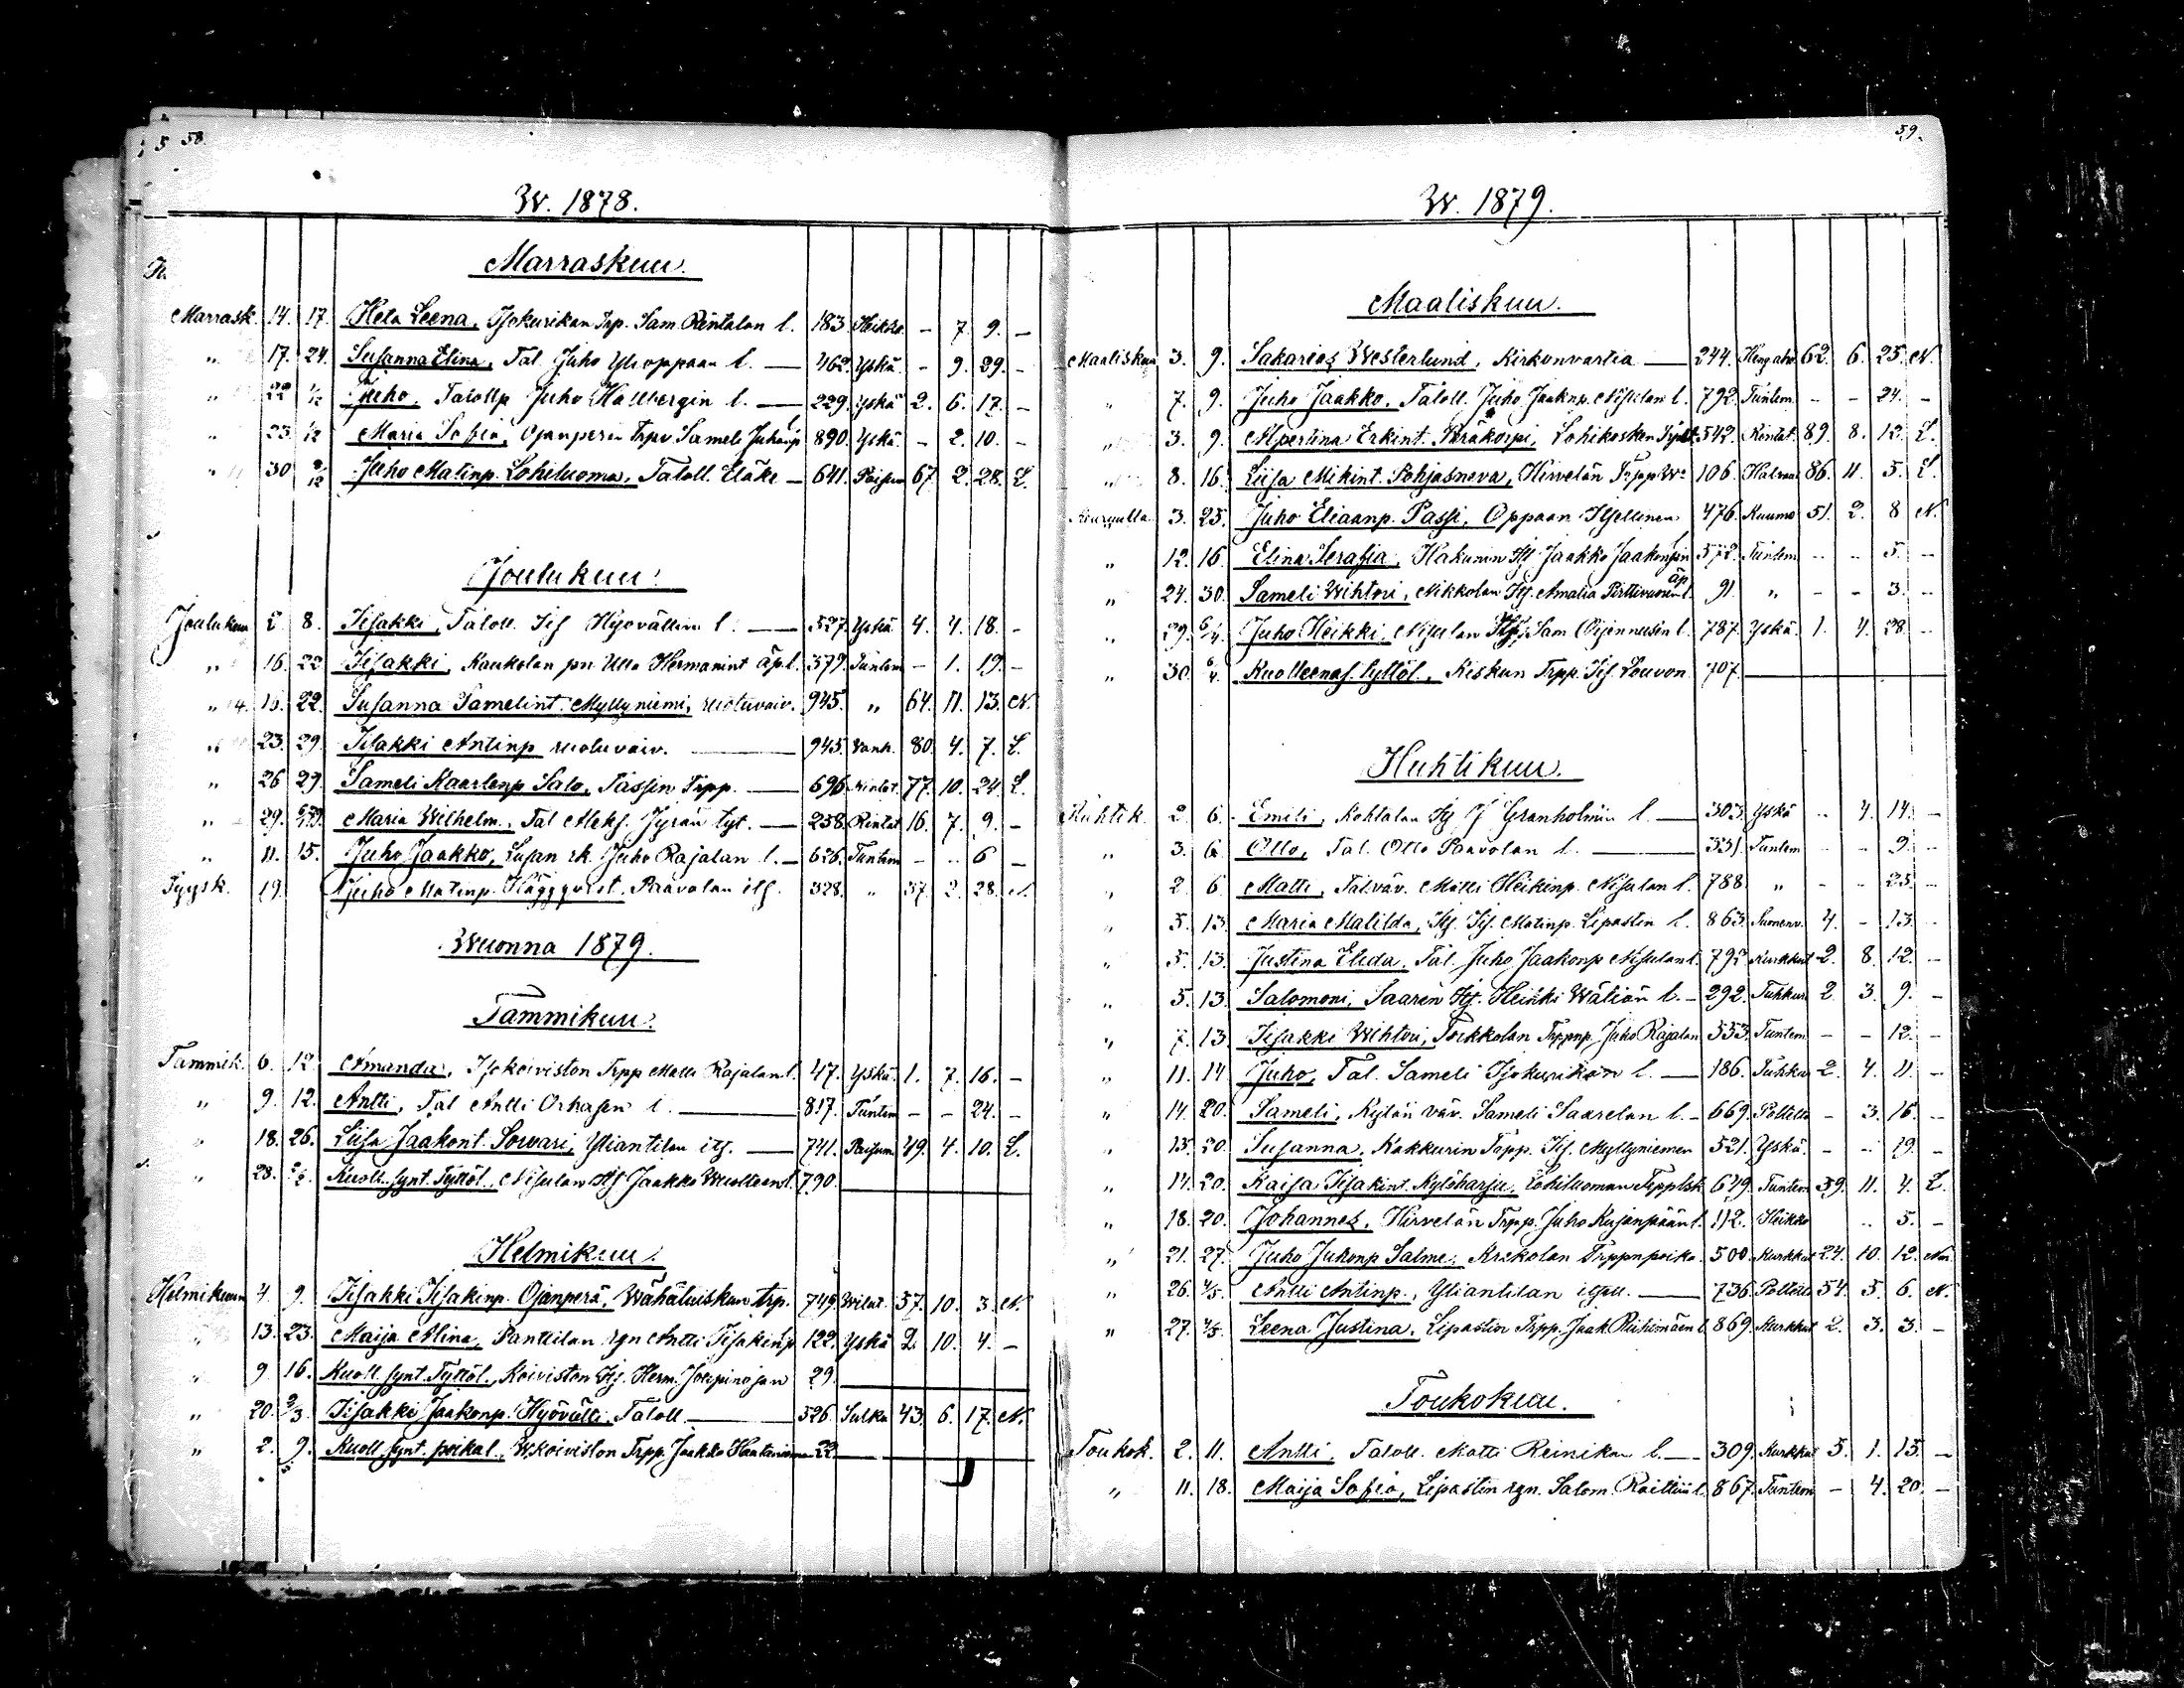 58
W. 1878.
Marraskuu.
Marrask. 14. 17. Heta Leena, Isokurikan Trp. Sam. Rintalan l. 183 Heikko. - 7. 9. -
" 17. 24. Susanna Elina, Tal. Juho Yli oppaan l. — 462. Yskä. - 9. 29. -
" 22 1/12 Juho, Talollp Juho Hallbergin l. — 229. Yskä 2. 6. 17. -
" 23. 1/12 Maria Sofia, Ojanperän trpv Sameli Juhanp l 890. Yskä. - 2. 10. -
" 30 2/12 Juho Matinp. Lohiluoma, Taloll. Eläke — 641. 67. 2. 28. L.
Joulukuu.
Joulukuu 2. 8. Iisakki, Taloll. Iis. Hyövältin l. — 527. Yskä 4. 4. 18. -
" 16. 22 Iisakki, Kaukolan Ulla Hermanint äp.l. 379. Tuntem - 1. 19. -
" 14. 22. Susanna Samelint. Myllyniemi, ruotuvaiv. 945. " 64. 11. 13. N.
" 23. 29. Iisakki Antinp ruotuvaiv. — 945. Vanh. 80. 4. 7. L.
" 26 29. Sameli Kaarlenp Salo, Passin Trpp. — 696 Rintat. 77. 10. 24. L.
" 29. Maria Wilhelm., Tal Aleks. Jyrän tyt. — 258. Rintat 16. 7. 9. -
" 11. 15. Juho Jaakko, Lusan rk. Juho Rajalan l. — 626. Tuntem - - 6 -
Syysk. 19. Juho Matinp. Häggqvist, Paavolan its. 328. " 37. 2. 28. N.
Wuonna 1879.
Tammikuu.
Tammik. 6. 12. Amanda, Isokoiviston Trpp Matti Rajalan l. 47. Yskä. 1. 7. 16. -
" 9. 12. Antti, Tal Antti Orhasen l. — 817. Tuntem - - 24. -
" 18. 26. Liisa Jaakont. Sorvari, Yliantilan its. — 741. Paisum 49. 4. 10. L.
" 28. 2/2. Kuoll. synt. Tyttöl., Nisulan Its Jaakko l. 790. —
Helmikuu.
Helmikuun 4. 9. Iisakki Iisakinp. Ojanperä, Wähäluiskun trp. 749. 37. 10. 3. N.
" 13. 23. Maija Alina, Panttilan rgn Antti Iisakinp l 122. Yskä 2. 10. 4. -
" 9. 16. Kuoll. synt. Tyttöl., Koiviston Its. Herm. Joupinojan 29. —
" 20. 2/3. Iisakki Jaakonp. Hyövälti Taloll. — 526. 43. 6. 17. N.
" 2. 9. Kuoll synt. poikal., W.koiviston Trpp. Jaakko 22. —
59.
W. 1879.
Maaliskuu.
Maaliskuu 3. 9. Sakarias Westerlund, Kirkonvartia — 244. Heng.ahd 62. 6. 25. N.
" 7. 9. Juho Jaakko, Taloll. Juho Jaaknp. Nisulan l. 792. Tuntem. - - 24. -
" 3. 9. Albertina Erkint. Peräkorpi, Lohikosken 542. Rintat. 89. 8. 12. L.
" 8. 16. Liisa Mikint. Pohjasneva, Hirvelän Trpp W: 106. Halvau 86. 11. 5. L.
3. 23. Juho Eliaanp. Passi, Oppaan Itsellinen 476. Kuume 51. 2. 8 N.
" 12. 16. Elina Serafia, Hakunin Its. Jaakko Jaakonpojan l 572. Tuntem - - 5. -
" 24. 30. Sameli Wihtori, Nikkolan Its. Amalia Pirttivuoren äp l. 91. " - - 3. -
" 29. 6/4. Juho Heikki, Nisulan Its. Sam. l. 787. Yskä. 1. 4. 28. -
" 30. 6/4. Kuolleenas. tyttöl., Kiskun Trpp. Iis. Louvon 707. —
Huhtikuu.
Huhtik. 2. 6. Emili, Kohtalan Its J Granholmin l. — 303. Yskä - 4. 14. -
" 3. 6. Otto, Tal. Otto Paavolan l. — 331. Tuntem - - 9. -
" 2. 6. Matti, Tal.väv. Matti Heikinp. Nisulan l. 788. " - - 25. -
" 5. 13. Maria Matilda, Its. Iis. Matinp. Lipastin l. 863. 4. - 13. -
" 5. 13. Justina Elida, Tal. Juho Jaakonp Nisulan l. 792 Kurkkut 2. 8. 12. -
" 5. 13. Salomoni, Saaren Its. Heikki Wäliän l. — 292. Tuhkur 2. 3. 9. -
" 7. 13. Iisakki Wihtori, Tuikkolan Trppnp. Juho Rajalan 553. Tuntem - - 12. -
" 11. 14 Juho, Tal. Sameli Isokurikan l. — 186. Tuhkur 2. 4. 11. -
" 14. 20. Sameli, Kylän väv. Sameli Saarelan l. — 669. Polttoa - 3. 16. -
" 15. 20. Susanna, Kakkurin Trpp. Iis. Myllyniemen 521. Yskä. - - 19. -
" 14. 20. Kaisa Iisakint. Kyläharju, Lohiluoman Trpplsk. 649. Tuntem 39. 11. 4. L.
" 18. 20. Johannes, Hirvelän Trpp. Juho Kujanpään l. 112. Heikko - 5. -
" 21. 27. Juho Juhonp Salme, Krekolan Trppnpoika. 500. Kurkkut 24. 10. 12.
" 26. 4/5. Antti Antinp., Yliantilan itsell. — 736. Polttoa 54. 5. 6. N.
" 27. 4/5. Leena Justina, Lipastin Trpp. Jaak. Riihimäen l. 869. Kurkkut 2. 3. 3. -
Toukokuu.
Toukok. 2. 11. Antti, Taloll. Matti Reinikan l. — 309. Kurkkut 5. 1. 15. -
" 11. 18. Maija Sofia, Lipastin rgn. Salom. Raittiin l. 867. Tuntem - 4. 20. -